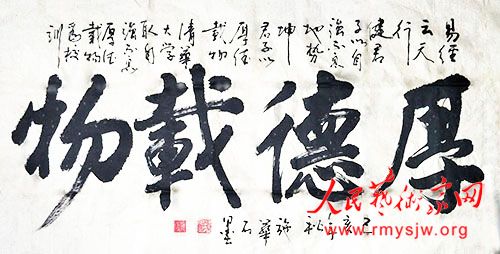 易經
云天
行
健君
子以自
強不息
地勢
坤
君子以
厚德
載物
清華
大學
取自
強不息
厚德
載物
為校
訓
厚德載物
己亥年秋
華石墨
人民藝術家网
www.rmysjw.org